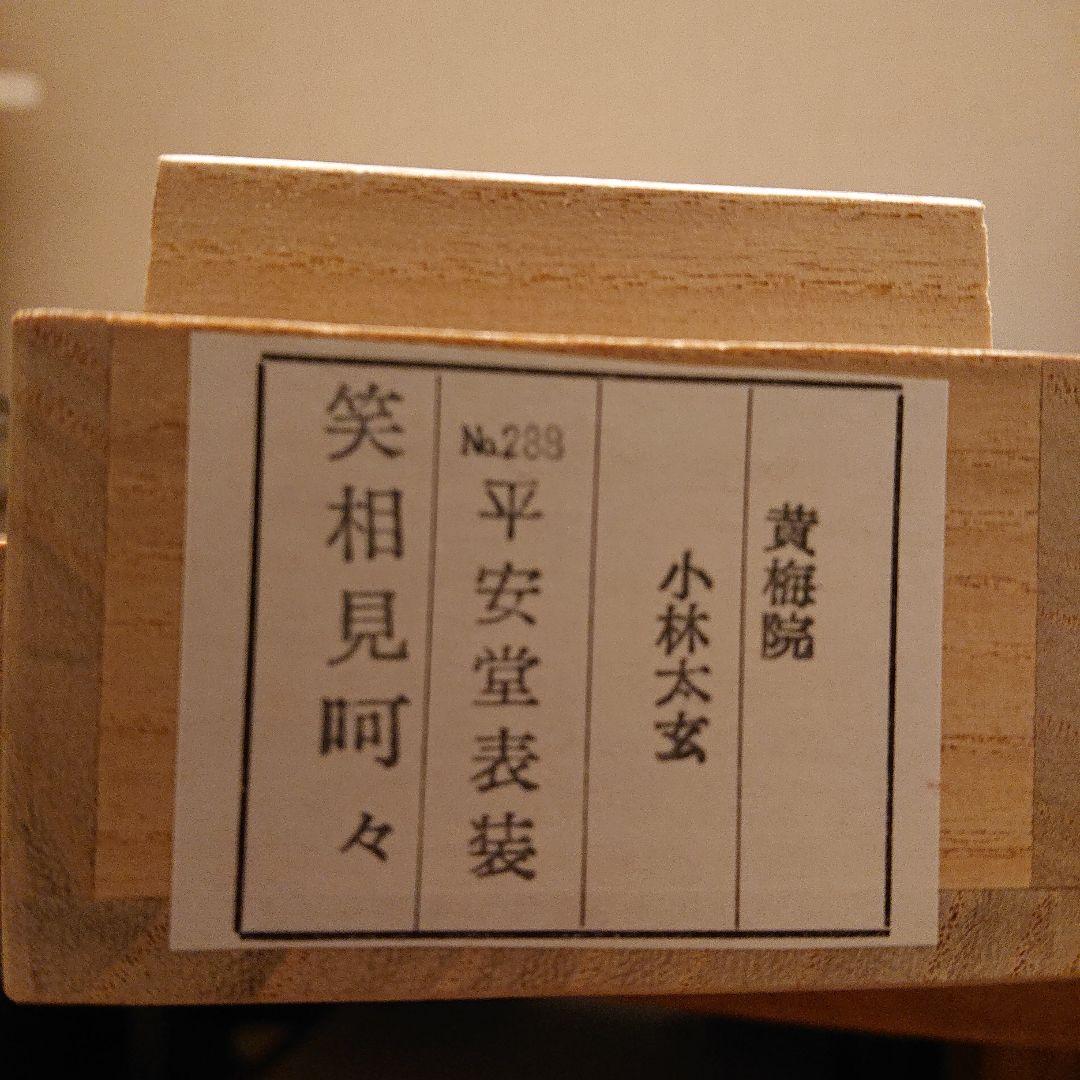 黄梅院
小林太玄
No.288平安堂表装
笑相見呵々